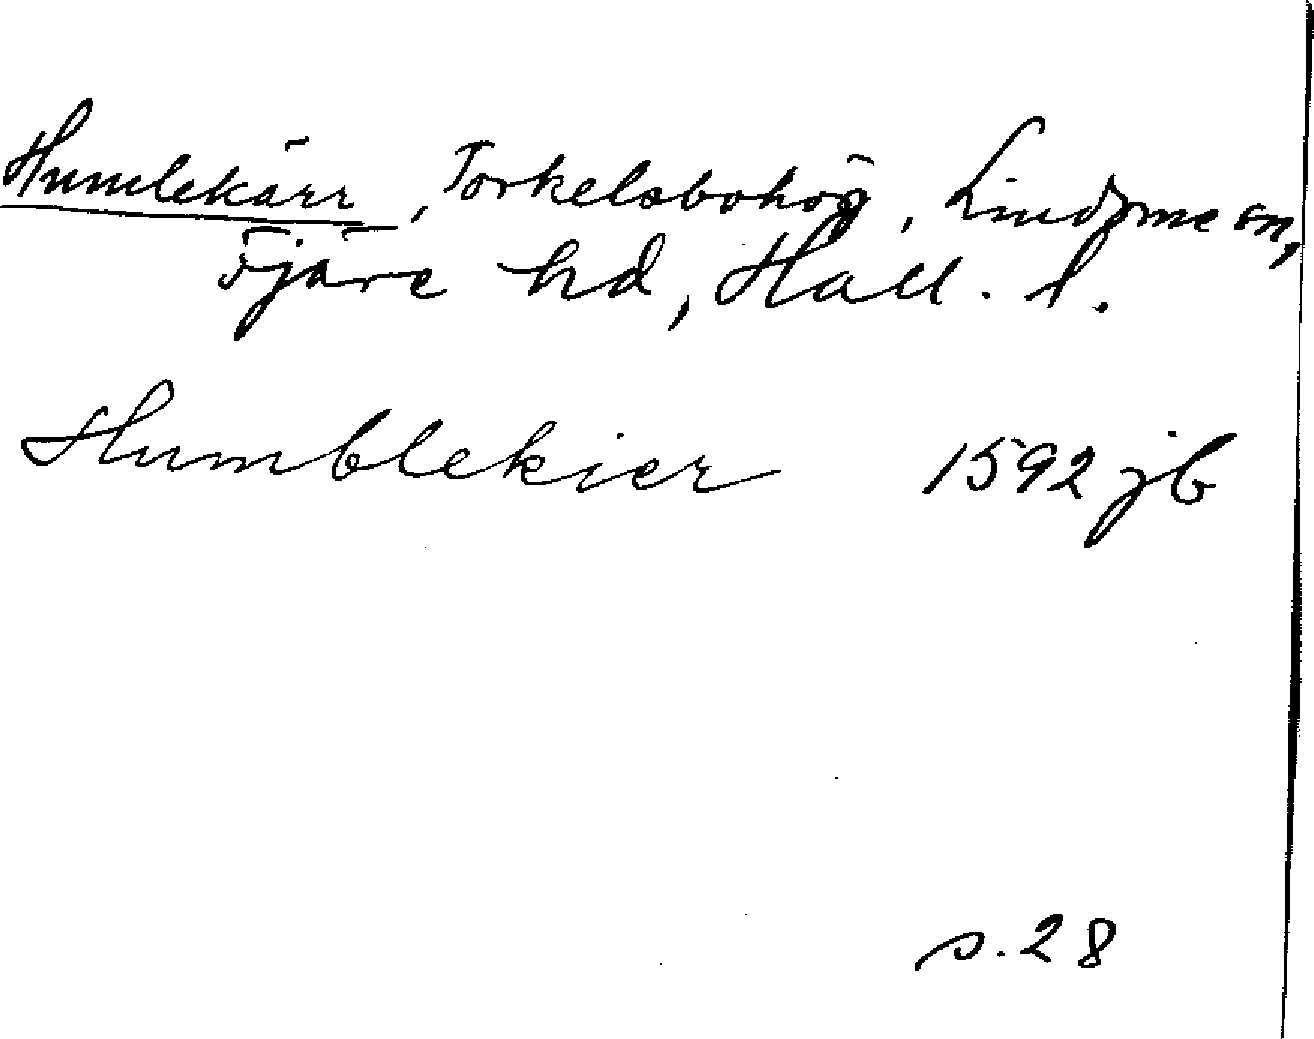 Humlekärr, Torkelsbohög, Lindome sn,
Fjäre hd, Hall. l.
Humblekier 1592 jb
s. 28